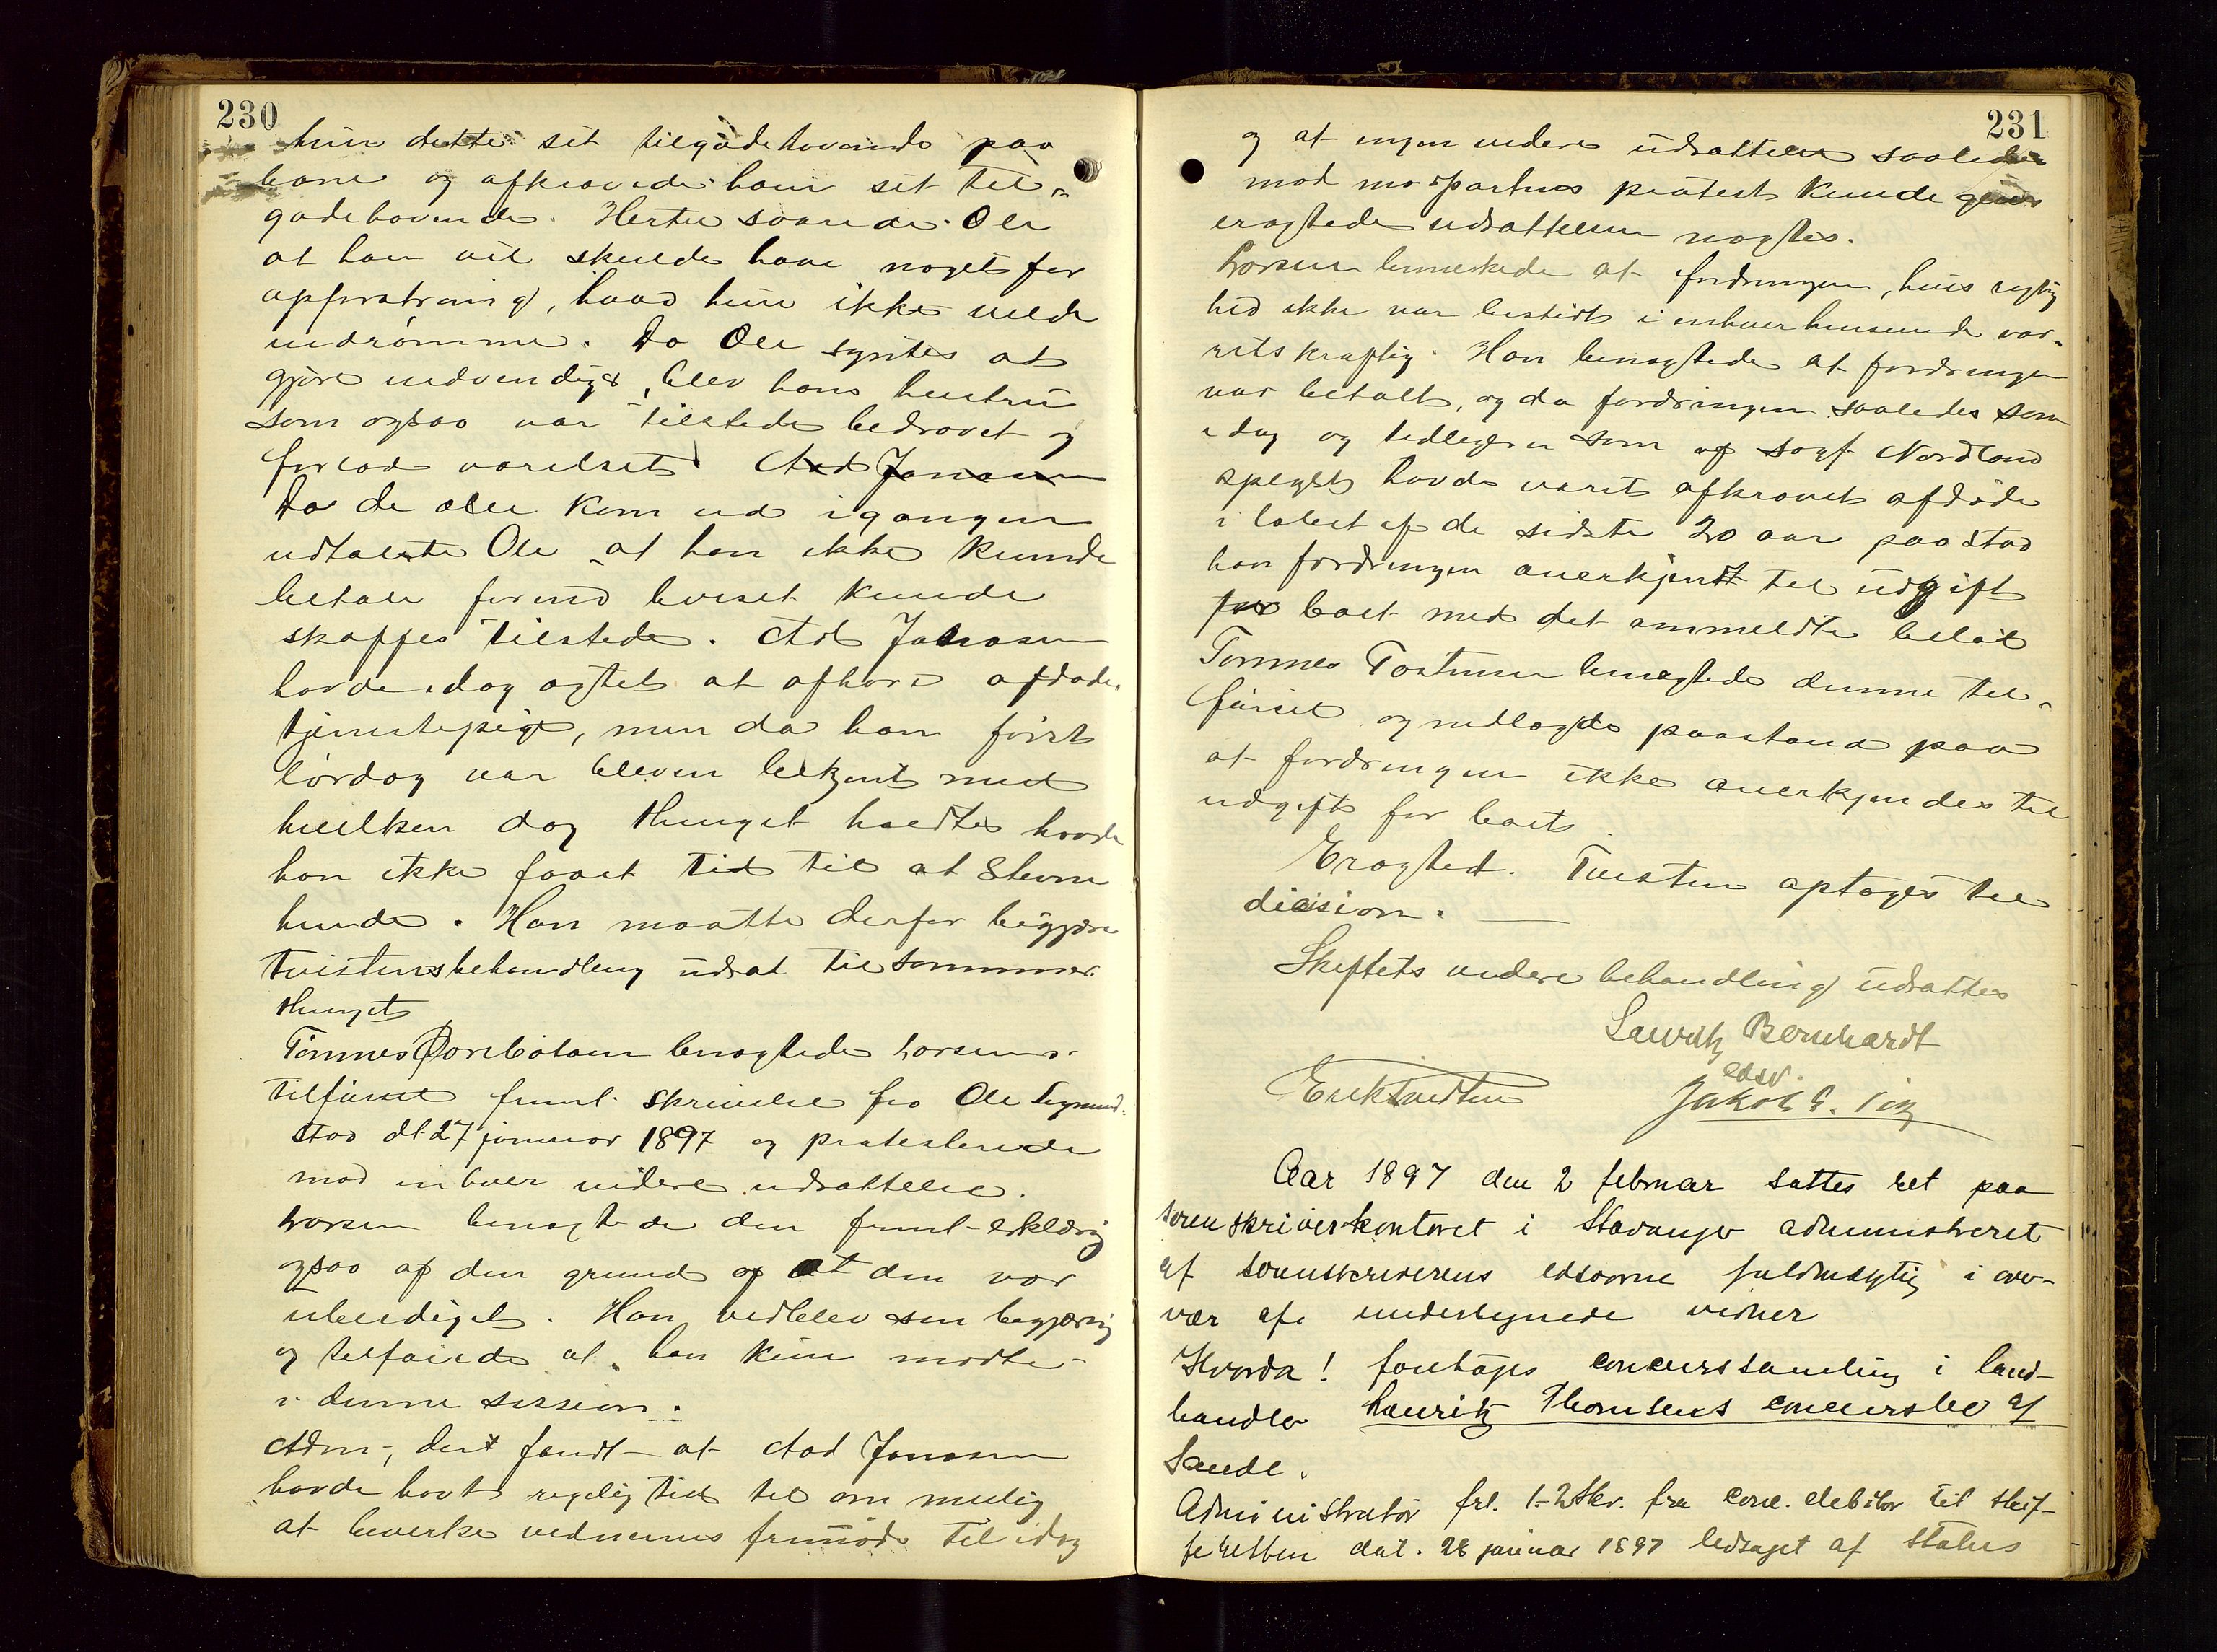 230
hun dette sit tilgodehavende paa
bane og afkrævede ham sit til-
godehavende. Hertil svarede Ole
at han vil skulde have noget for
opfostring, hvad hun ikke vilde
indrømme. Da Ole syntes at
gjøre indvendiger, blev hans hustru
som ogsaa var tilstede bedrøvet og
forlod værelset. Ad Jonassen
Da de alle kom ud i gangen
udtalte Ole at han ikke kunde
betale førend beviset kunde
skaffes tilstede. Ad Jonassen
havde idag agtet at afhøre afdødes
tjenestepige, men da han først
lørdag var bleven bekjent med
hvilken dag thinget holdtes havde
han ikke faaet tid til at stevne
hende. Han maatte derfor begjære
tvistensbehandling udsat til sommer-
thinget
Tønnes benægtede Larsens
tilførsel freml. skrivelse fra Ole Sigmund-
stad dt. 27 januar 1897 og protesterede
mod enhver videre udsættelse.
Larsen benægtede den freml. erklæring
ogsaa af den grund af at den var
ubeediget. Han vedblev sin begjæring
og tilføiede at han kun mødte
i denne session.
Adm., der fandt at Aad Jonassen
havde havt rigelig tid til om mulig
at bevirke vidnernes fremmøde til idag
231
og at ingen videre udsættelse saaledes
mod modpartens protest kunde gives
eragtede udsættelsen nægtes.
Larsen bemerkede at fordringen, hvis rigtig
hed ikke var bestridt i enhver henseende var
retskraftig. Han benægtede at fordringen
var betalt, og da fordringen saaledes som
idag og tidligere som af sagf. Nordland
havde været afkrævet afdøde
i løbet af de sidste 20 aar paastod
han fordringen anerkjendt til udgift
for boet med det anmeldte beløb
Tønnes Tostensen benægtede denne til-
førsel og nedlagde paastand paa
at fordringen ikke anerkjendes til
udgift for boet.
Eragted. Tvisten optages til
dicision.
Skiftets videre behandling udsættes
Lauritz Bernhardt
edsv.
Erik Jakob
Aar 1897 den 2 februar sattes ret paa
sorenskriverkontoret i Stavanger administreret
af sorenskriverens edsvorne fuldmægtig i over-
vær af undertegnede vidner
Hvorda! foretoges concurssamling i land-
handler Lauritz Thomsens concursbo af
Sande.
Administrator frl. 1-2 Skr. fra conc. debitor til skif-
teretten dat. 28 januar 1897 ledsaget af status